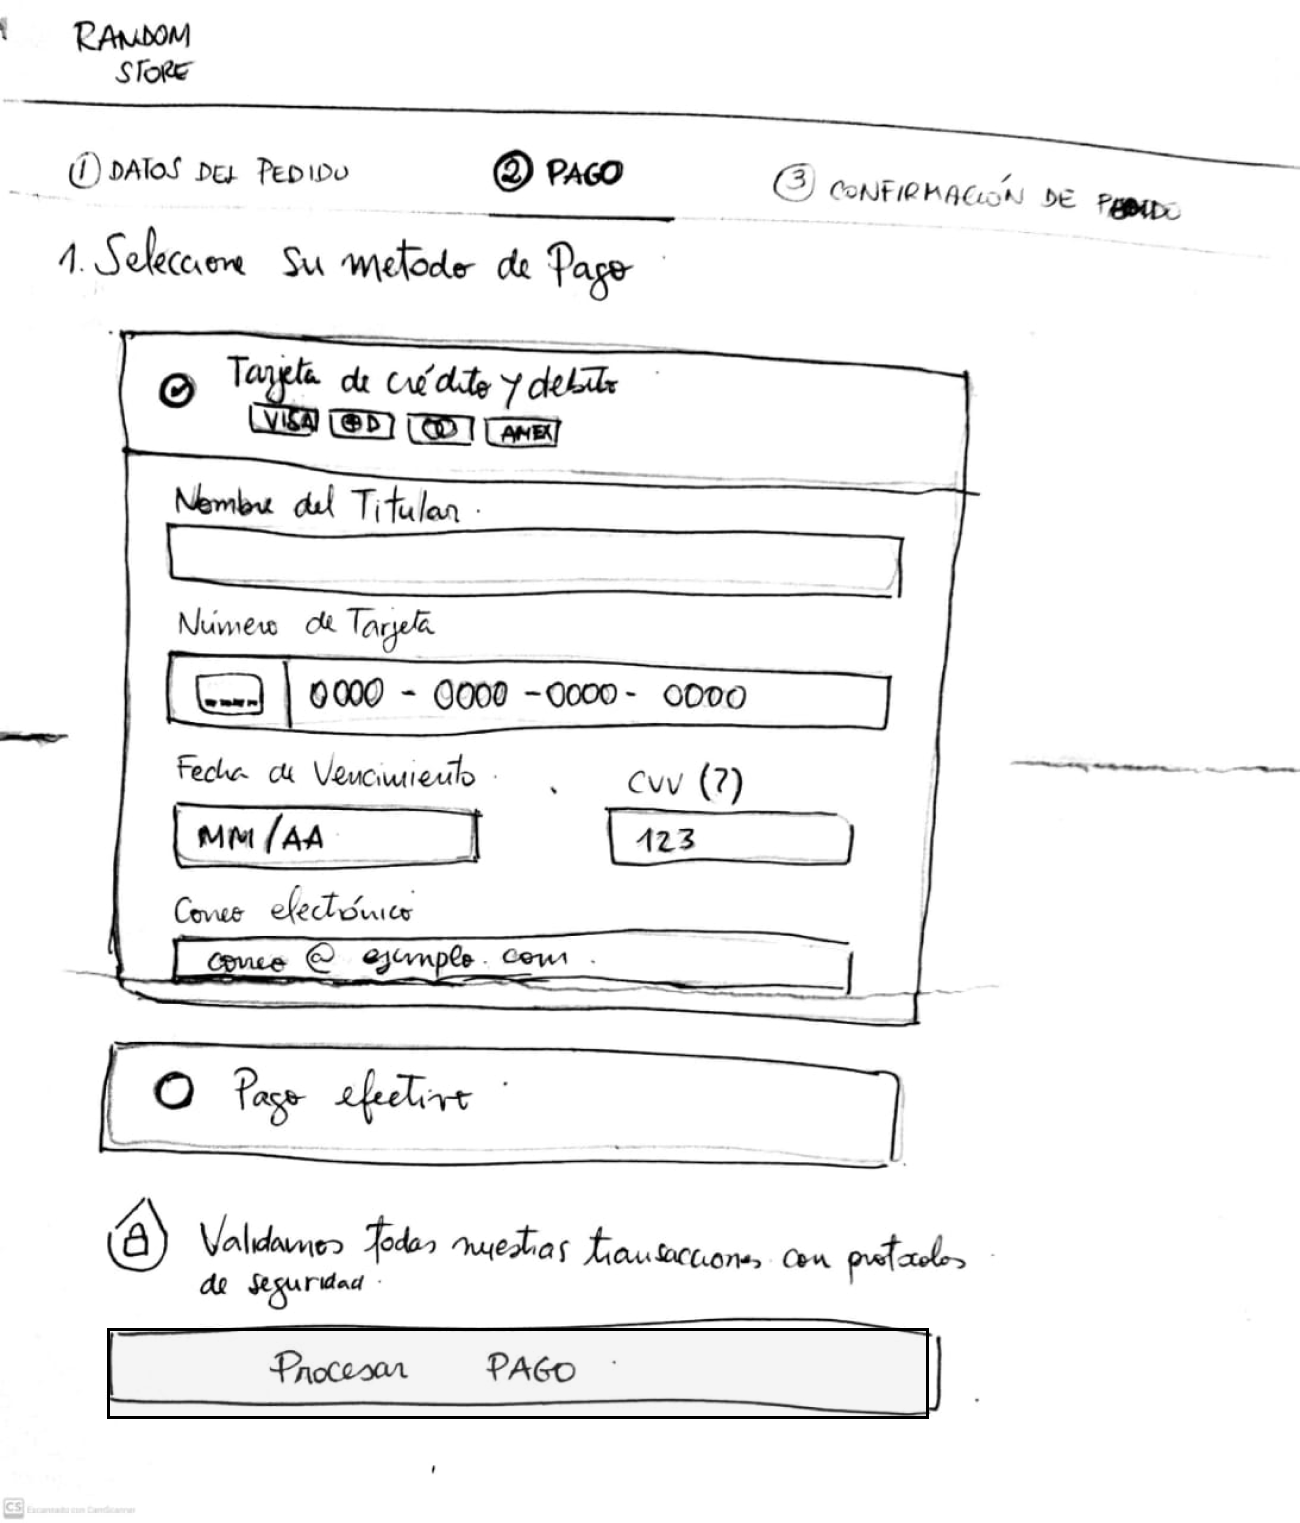 RANDOM
STORE
1 DATOS DEL PEDIDO
2 PAGO
3 CONFIRMACIÓN DE PEDIDO
1. Seleccione su metodo de Pago
Tarjeta de crédito y debito
VISA
D
AMEX
Nombre del Titular
Número de Tarjeta
0000 - 0000 - 0000 - 0000
Fecha de Vencimiento
CVV (?)
MM/AA
123
Correo electrónico
correo @ ejemplo. com
Pago efectivo
Validamos todas nuestras transacciones con protocolos
de seguridad
Procesar PAGO
CS Escaneado con CamScanner